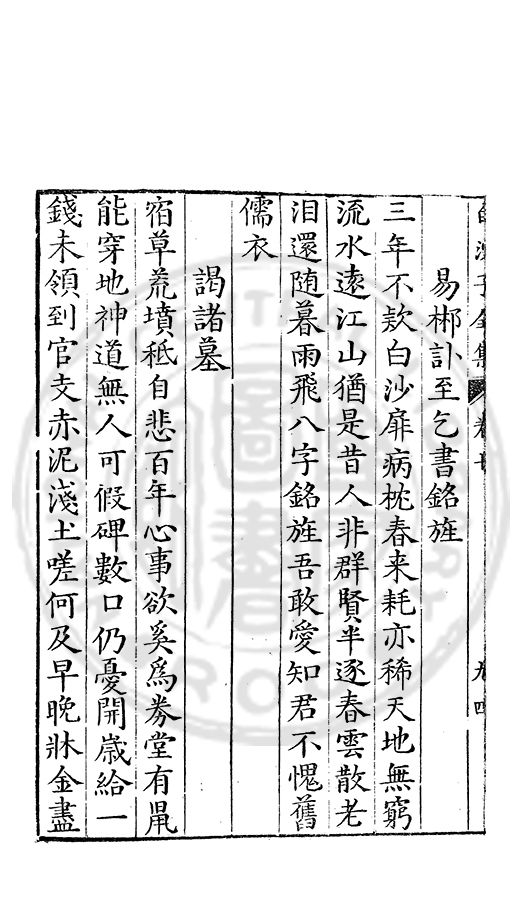 白沙子全集 卷
九四
易郴訃至乞書銘旌
三年不欵白沙扉病枕春来耗亦稀天地無窮
流水逺江山猶是昔人非群賢半逐春雲散老
泪還随暮雨飛八字銘旌吾敢愛知君不愧舊
儒衣
謁諸墓
宿草荒墳秪自悲百年心事欲奚爲劵堂有鼡
能穿地神道無人可假碑數口仍憂開歲給一
錢未領到官支赤泥淺土嗟何及早晚牀金盡